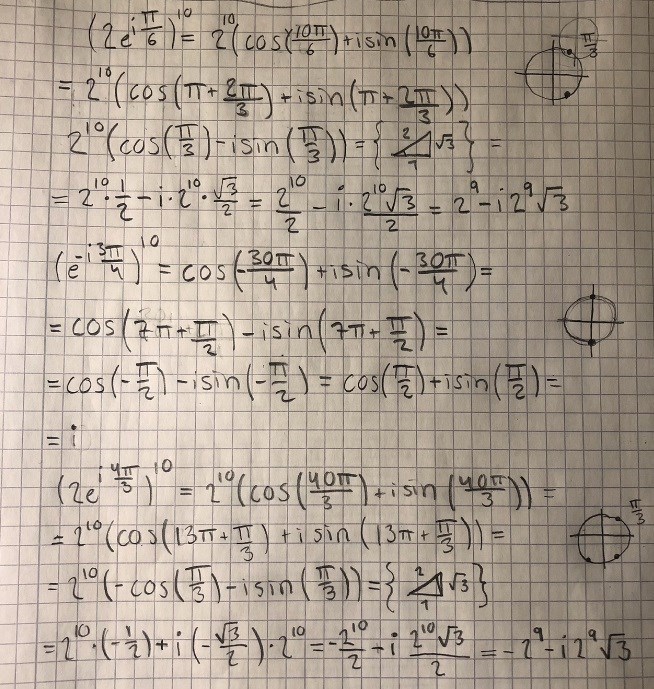 (2e^{i\frac{π}{6}})^{10} = 2^{10}(cos(\frac{10π}{6}) + isin(\frac{10π}{6})) \frac{π}{3}
= 2^{10}(cos(π + \frac{2π}{3}) + isin(π + \frac{2π}{3}))
2^{10}(cos(\frac{π}{3}) - isin(\frac{π}{3})) = { 2 √3 1 } =
= 2^{10} · \frac{1}{2} - i · 2^{10} · \frac{√3}{2} = \frac{2^{10}}{2} - i · \frac{2^{10}√3}{2} = 2^9 - i2^9√3
(e^{-i\frac{3π}{4}})^{10} = cos(-\frac{30π}{4}) + isin(-\frac{30π}{4}) =
= cos(7π + \frac{π}{2}) - isin(7π + \frac{π}{2}) =
= cos(-\frac{π}{2}) - isin(-\frac{π}{2}) = cos(\frac{π}{2}) + isin(\frac{π}{2}) =
= i
(2e^{i\frac{4π}{3}})^{10} = 2^{10}(cos(\frac{40π}{3}) + isin(\frac{40π}{3})) =
= 2^{10}(cos(13π + \frac{π}{3}) + isin(13π + \frac{π}{3})) = \frac{π}{3}
= 2^{10}(-cos(\frac{π}{3}) - isin(\frac{π}{3})) = { 2 √3 1 }
= 2^{10} · (-\frac{1}{2}) + i(-\frac{√3}{2}) · 2^{10} = -\frac{2^{10}}{2} - i \frac{2^{10}√3}{2} = -2^9 - i2^9√3